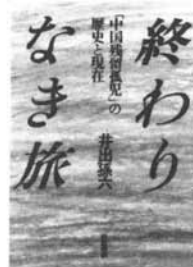 終わり
なき旅
「中国残留孤児」の
歴史と現在
井出孫六